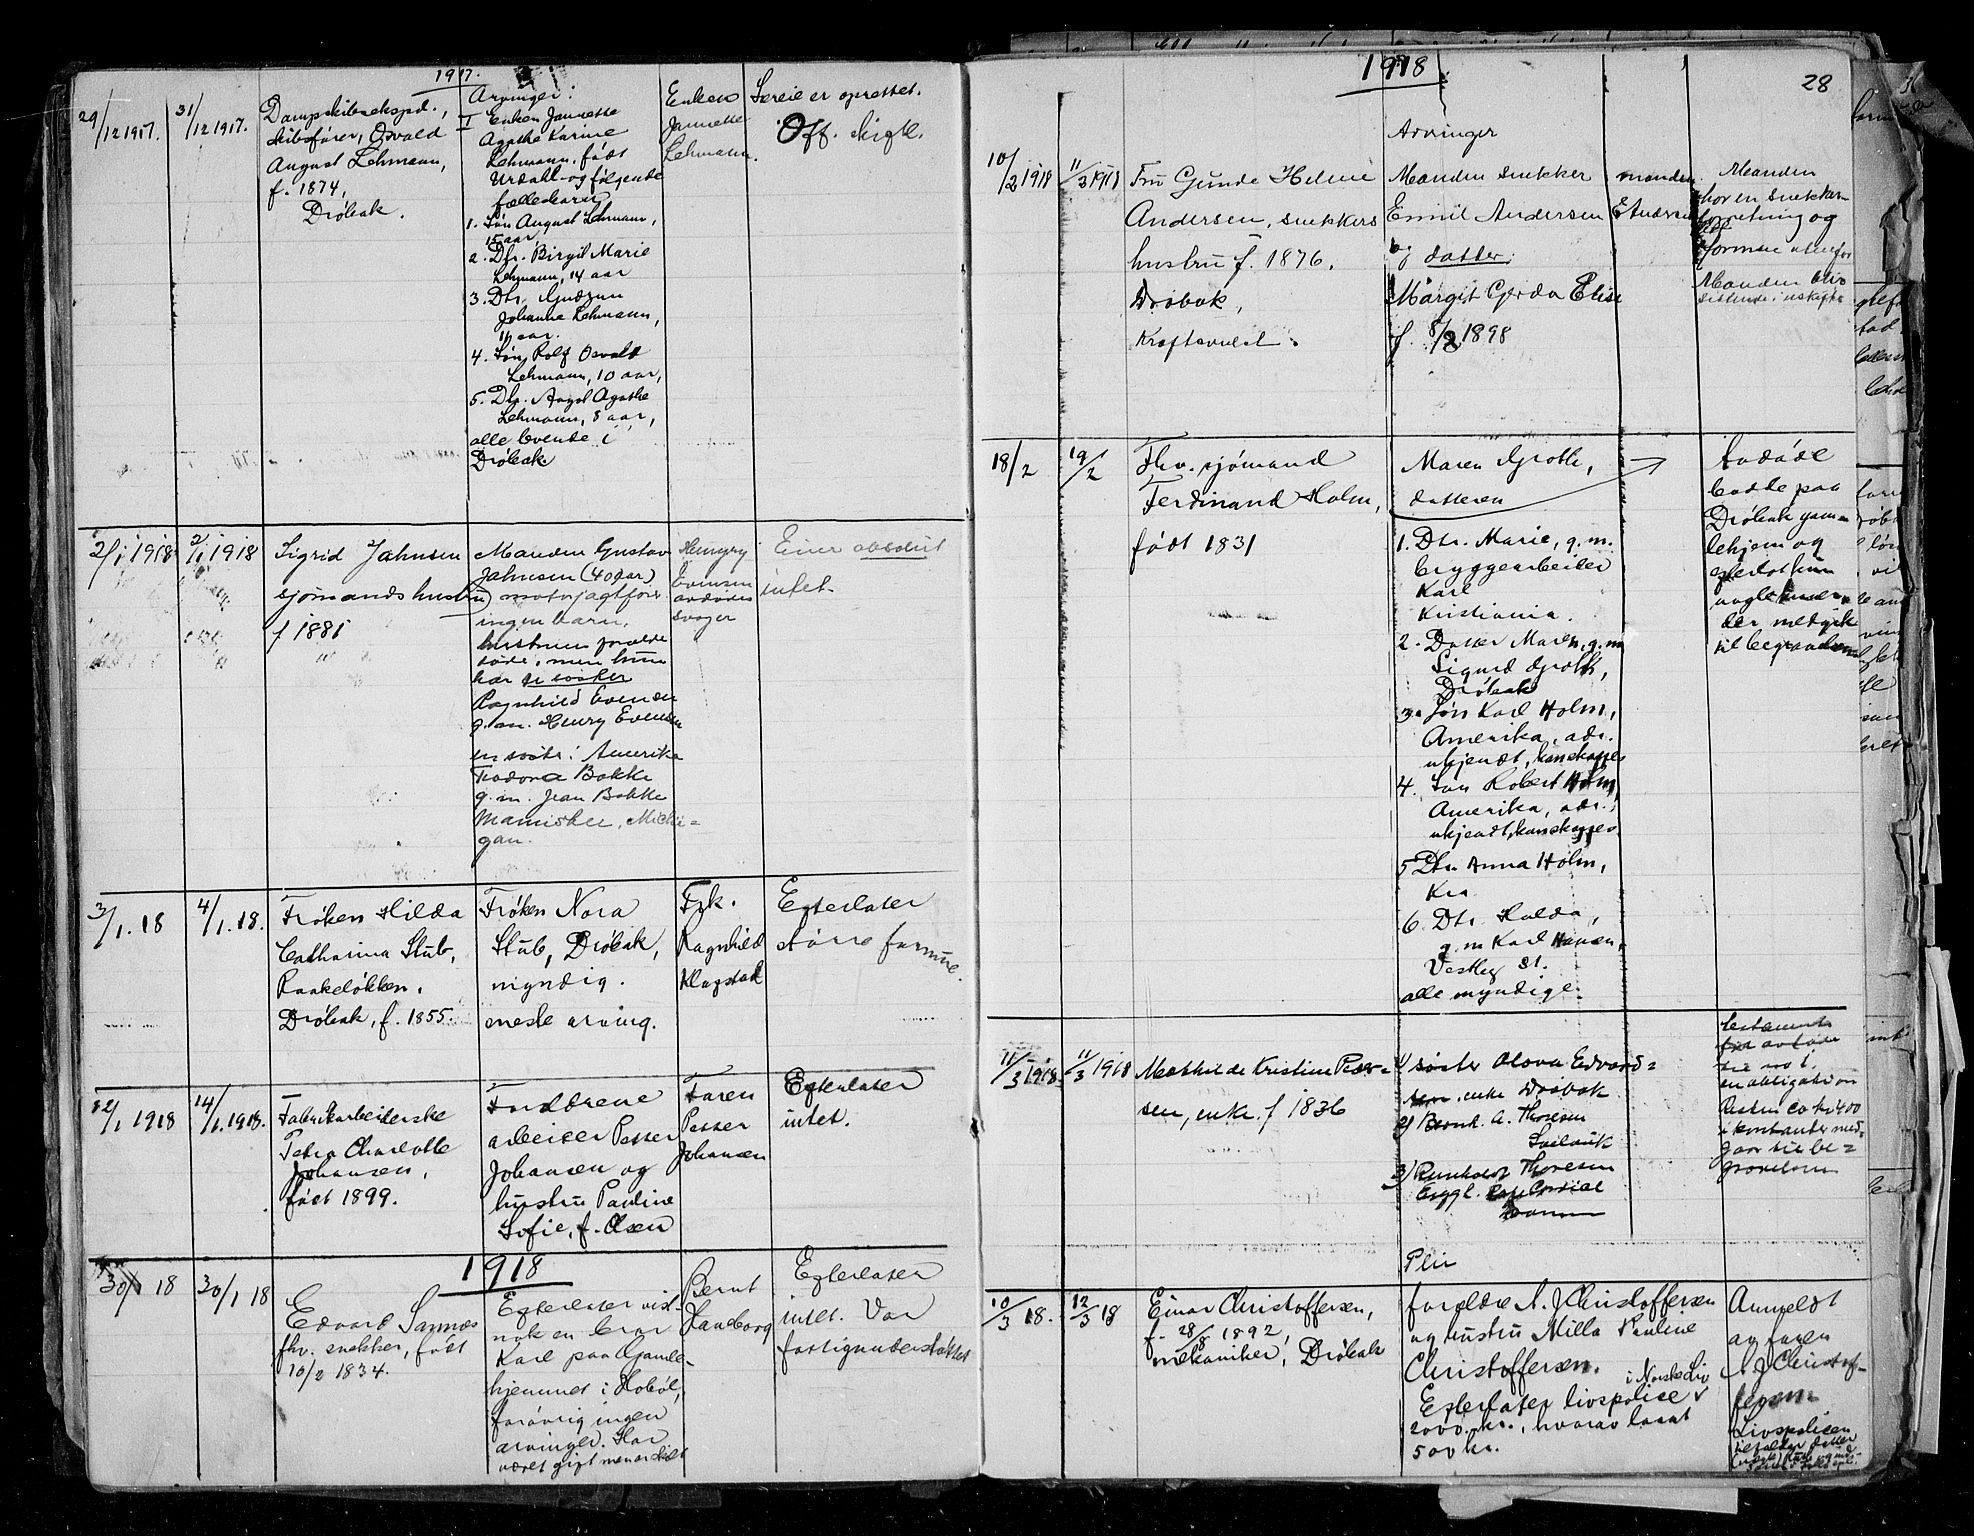 1917.
29/12 1917.
31/12 1917.
Dampskibsekspd.,
skibsfører, Osvald
August Lehmann,
f. 1874,
Drøbak.
Arvinger:
I Enken Jannette
Agathe Karine
Lehmann, født
Urdahl og følgende
fællesbarn
1. Søn August Lehmann,
15 aar,
2. Dtr. Birgit Marie
Lehmann, 14 aar
3. Dtr. Gudrun
Johanne Lehmann,
11 aar.
4. Søn Rolf Osvald
Lehmann, 10 aar,
5. Dtr. Aagot Agathe
Lehmann, 8 aar,
alle boende i
Drøbak
Enken
Jannette
Lehmann.
Særeie er oprettet.
Off. skifte.
2/1 1918
2/1 1918
Sigrid Jahnsen
sjømandshustru
f 1881
Manden Gustav
Jahnsen (40 aar)
motorjagtfører
ingen barn,
hustruens forældre
døde, men hun
har søsker
Ragnhild Evensen
g.m. Henry Evensen
en søster i Amerika
Teodora Bakke
g.m. Jean Bakke
Manistee, Michi=
gan.
Henry
Evensen
avdødes
svoger
Einer absolut
intet
3/1. 18
4/1. 18.
Frøken Hilda
Catharina Stub,
Raakeløkken,
Drøbak, f. 1855.
Frøken Nora
Stub, Drøbak,
myndig.
eneste arving.
Frk.
Ragnhild
Klagstad
Efterlater
større formue.
12/1 1918
14/1. 1918.
Fabrikarbeiderske
Petra Charlotte
Johansen,
født 1899.
Forældrene
arbeider Petter
Johansen og
hustru Pauline
Sofie, f. Olsen
Faren
Petter
Johansen
Efterlater
intet.
1918
30/1 18
30/1 18
Edvard Sannæs
fhv. snekker, født
10/2 1834.
Efterlater vist-
nok en bror
Karl paa Gamle-
hjemmet i Hobøl,
forøvrig ingen
arvinger. Har
været gift men er skilt
Bernt
Haneborg
Efterlater
intet. Var
fattigunderstøttet
1918
28
10/2 1918
11/2 1918
Fru Gunda Helene
Andersen, snekkers
hustru f. 1876.
Drøbak,
Kraftavueit.
Arvinger
Manden snekker
Emil Andersen
og datter:
Margit Gerda Elise
f. 8/2 1898
manden
E Andersen
Manden
har en snekker-
forretning og
formue utenfor
Manden blir
sittende i uskiftet
18/2
19/2
Fhv. sjømand
Ferdinand Holm,
født 1831
Maren Grøtte,
datteren
1. Dtr. Marie, g.m.
bryggearbeider
Karl
Kristiania.
2. Datter Maren, g.m
Sigurd Grøtte,
Drøbak
3. Søn Karl Holm,
Amerika, adr.
ukjendt,
4. Søn Robert Holm,
Amerika, adr.
ukjendt,
5 Dtr. Anna Holm,
Kra
6. Dtr. Hulda,
g.m Karl Hansen,
Vestby st.
alle myndige.
Avdøde
bodde paa
Drøbak gam-
lehjem og
efterlot kun
nogle
der medgik
til begravelsen
11/3 1918.
11/3 1918
Mathilde Kristine Peder=
sen, enke f 1836
1/ søster Olava Edvard=
sen, enke Drøbak
2/ A. Thoresen
Svelvik
3) Reinholdt Thoresen
testamente
en obligation
ca kr 400
i kontanter med=
gaar til be=
gravelsen
10/3 18.
12/3 18
Einar Christoffersen,
f. 28/8 1892,
mekaniker, Drøbak
forældre A. J Christoffersen
og hustru Milla Pauline
Christoffersen.
Efterlater livspolice i Norske Liv
2000 kr., hvorav laant
500 kr.
Anmeldt
av faren
A. J Christof-
fersen
Livspolicen
tilfalder datter